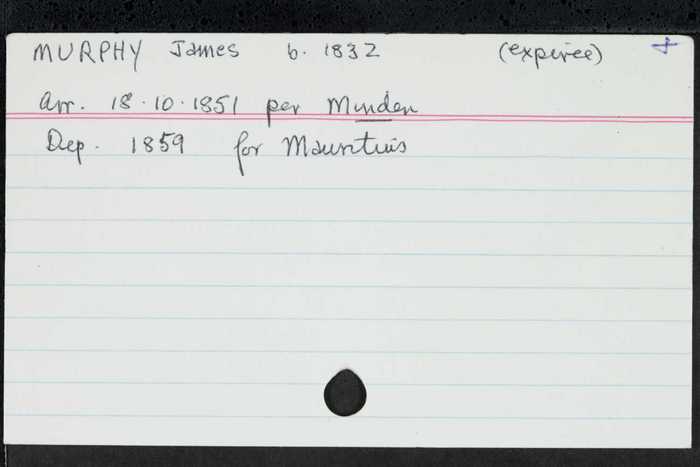 MURPHY James b. 1832 (expiree)
Arr. 18.10.1851 per Minden
Dep. 1859 for Mauritius